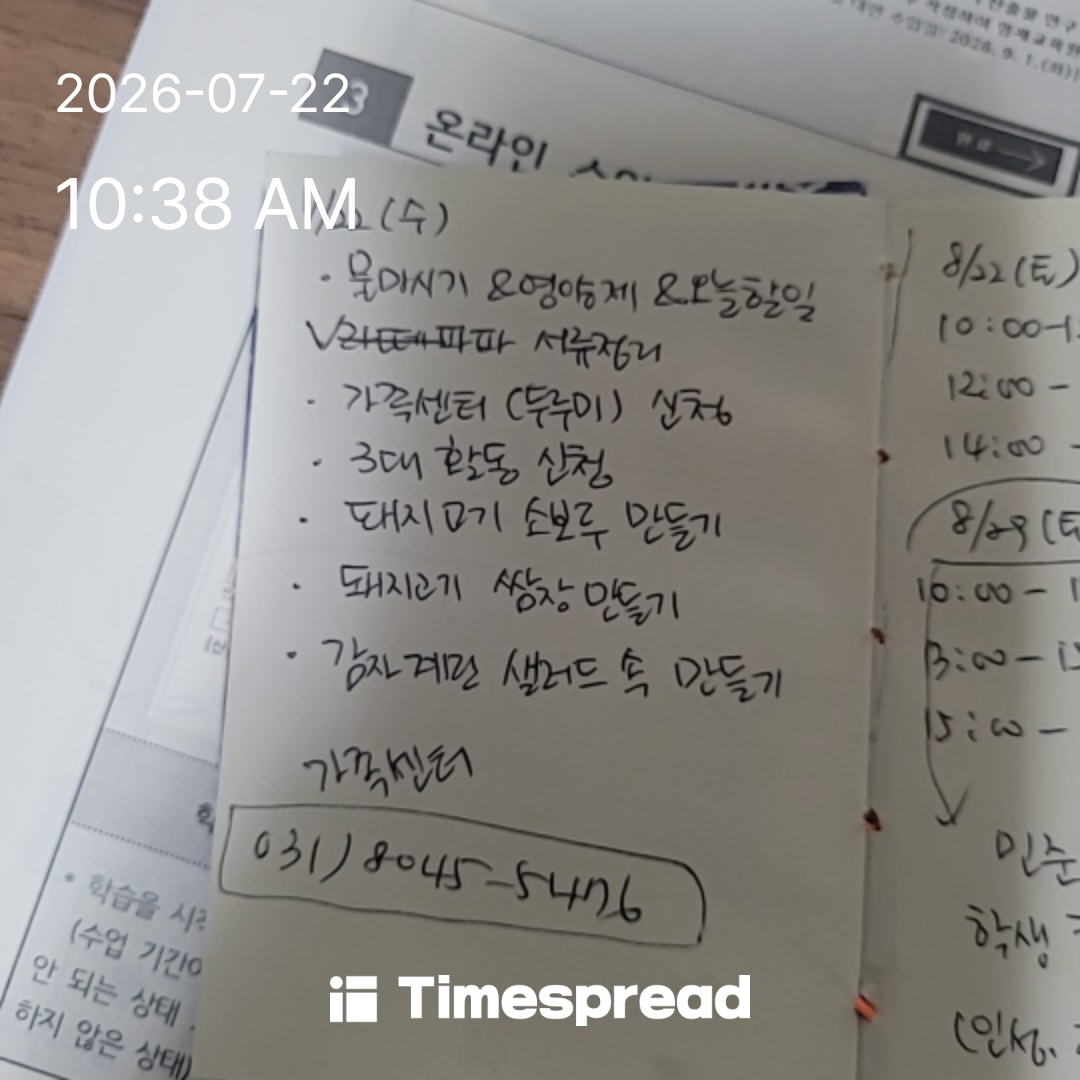 2026-07-22
10:38 AM
3
온라인
(수)
· 물마시기 &영양제 &오늘할일
√라떼파파 서류정리
· 가족센터 (두루미) 신청
· 3대 활동 신청
· 돼지고기 소보루 만들기
· 돼지고기 쌈장 만들기
· 감자계란 샐러드 속 만들기
가족센터
031) 8045-5476
8/22 (토)
10:00-1
12:00 -
14:00 -
8/29 (토
10:00 - 1
13:00 - 15
15:00 -
민준
학생
(인성.
• 학습을 시작
(수업 기간
안 되는 상태
하지 않은 상태)
Timespread